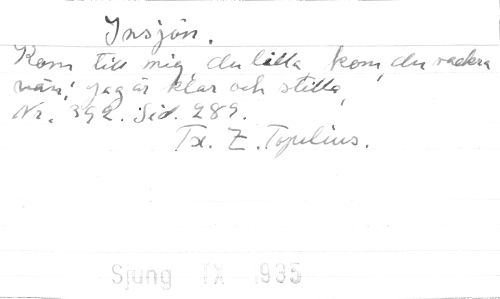 Insjön.
Kom till mig, du lilla, kom, du vackra
vän! Jag är klar och stilla,
Nr. 392. Sid. 289.
Tx. Z. Topelius.
Sjung IX 1935